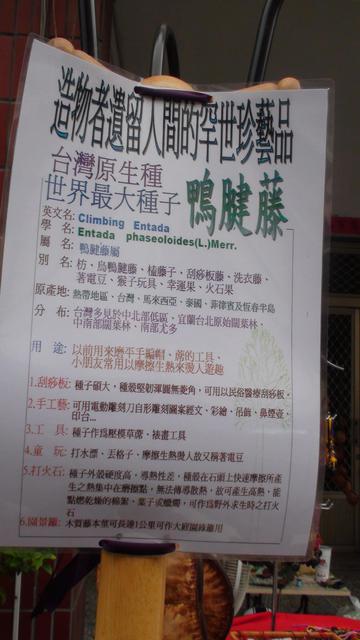 造物者遺留人間的罕世珍藝品
台灣原生種
世界最大種子 鴨腱藤
英文名: Climbing Entada
學名: Entada phaseoloides(L.)Merr.
屬名: 鴨腱藤屬
別名: 枋、烏鴨腱藤、榼藤子、刮痧板藤、洗衣藤、
著電豆、猴子玩具、幸運果、火石果
原產地: 熱帶地區、台灣、馬來西亞、泰國、菲律賓及恆春半島
分布: 台灣多見於中北部低區、宜蘭台北原始闊葉林、
中南部闊葉林、南部尤多
用途: 以前用來磨平手編帽、蓆的工具、
小朋友常用以摩擦生熱來愛人遊趣
1.刮痧板: 種子碩大,種殼堅韌渾圓無菱角,可用以民俗醫療刮痧板。
2.手工藝: 可用電動雕刻刀自形雕刻圖案經文、彩繪、吊飾、鼻煙壺、
印台...
3.工具: 種子作為壓模草蓆、裱畫工具
4.童玩: 打水漂、丟格子、摩擦生熱燙人故又稱著電豆
5.打火石: 種子外殼硬度高,導熱性差,種殼在石頭上快速摩擦所產
生之熱集中在磨擦點,無法傳導散熱,故可產生高熱,能
點燃乾燥的棉絮、葉子或蠟燭,可作為野外求生時之打火
石
6.園景籬: 木質藤本莖可長達1公里可作大庭園綠籬用